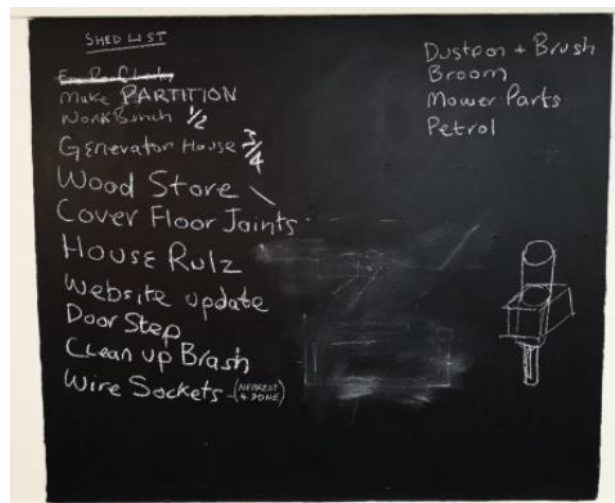 SHED LIST
Make PARTITION
Work Bench 1/2
Generator House 3/4
Wood Store
Cover Floor Joints
House Rulz
Website update
Door Step
Clean up Brash
Wire Sockets - (NEAREST 4 DONE)
Dustpan + Brush
Broom
Mower Parts
Petrol